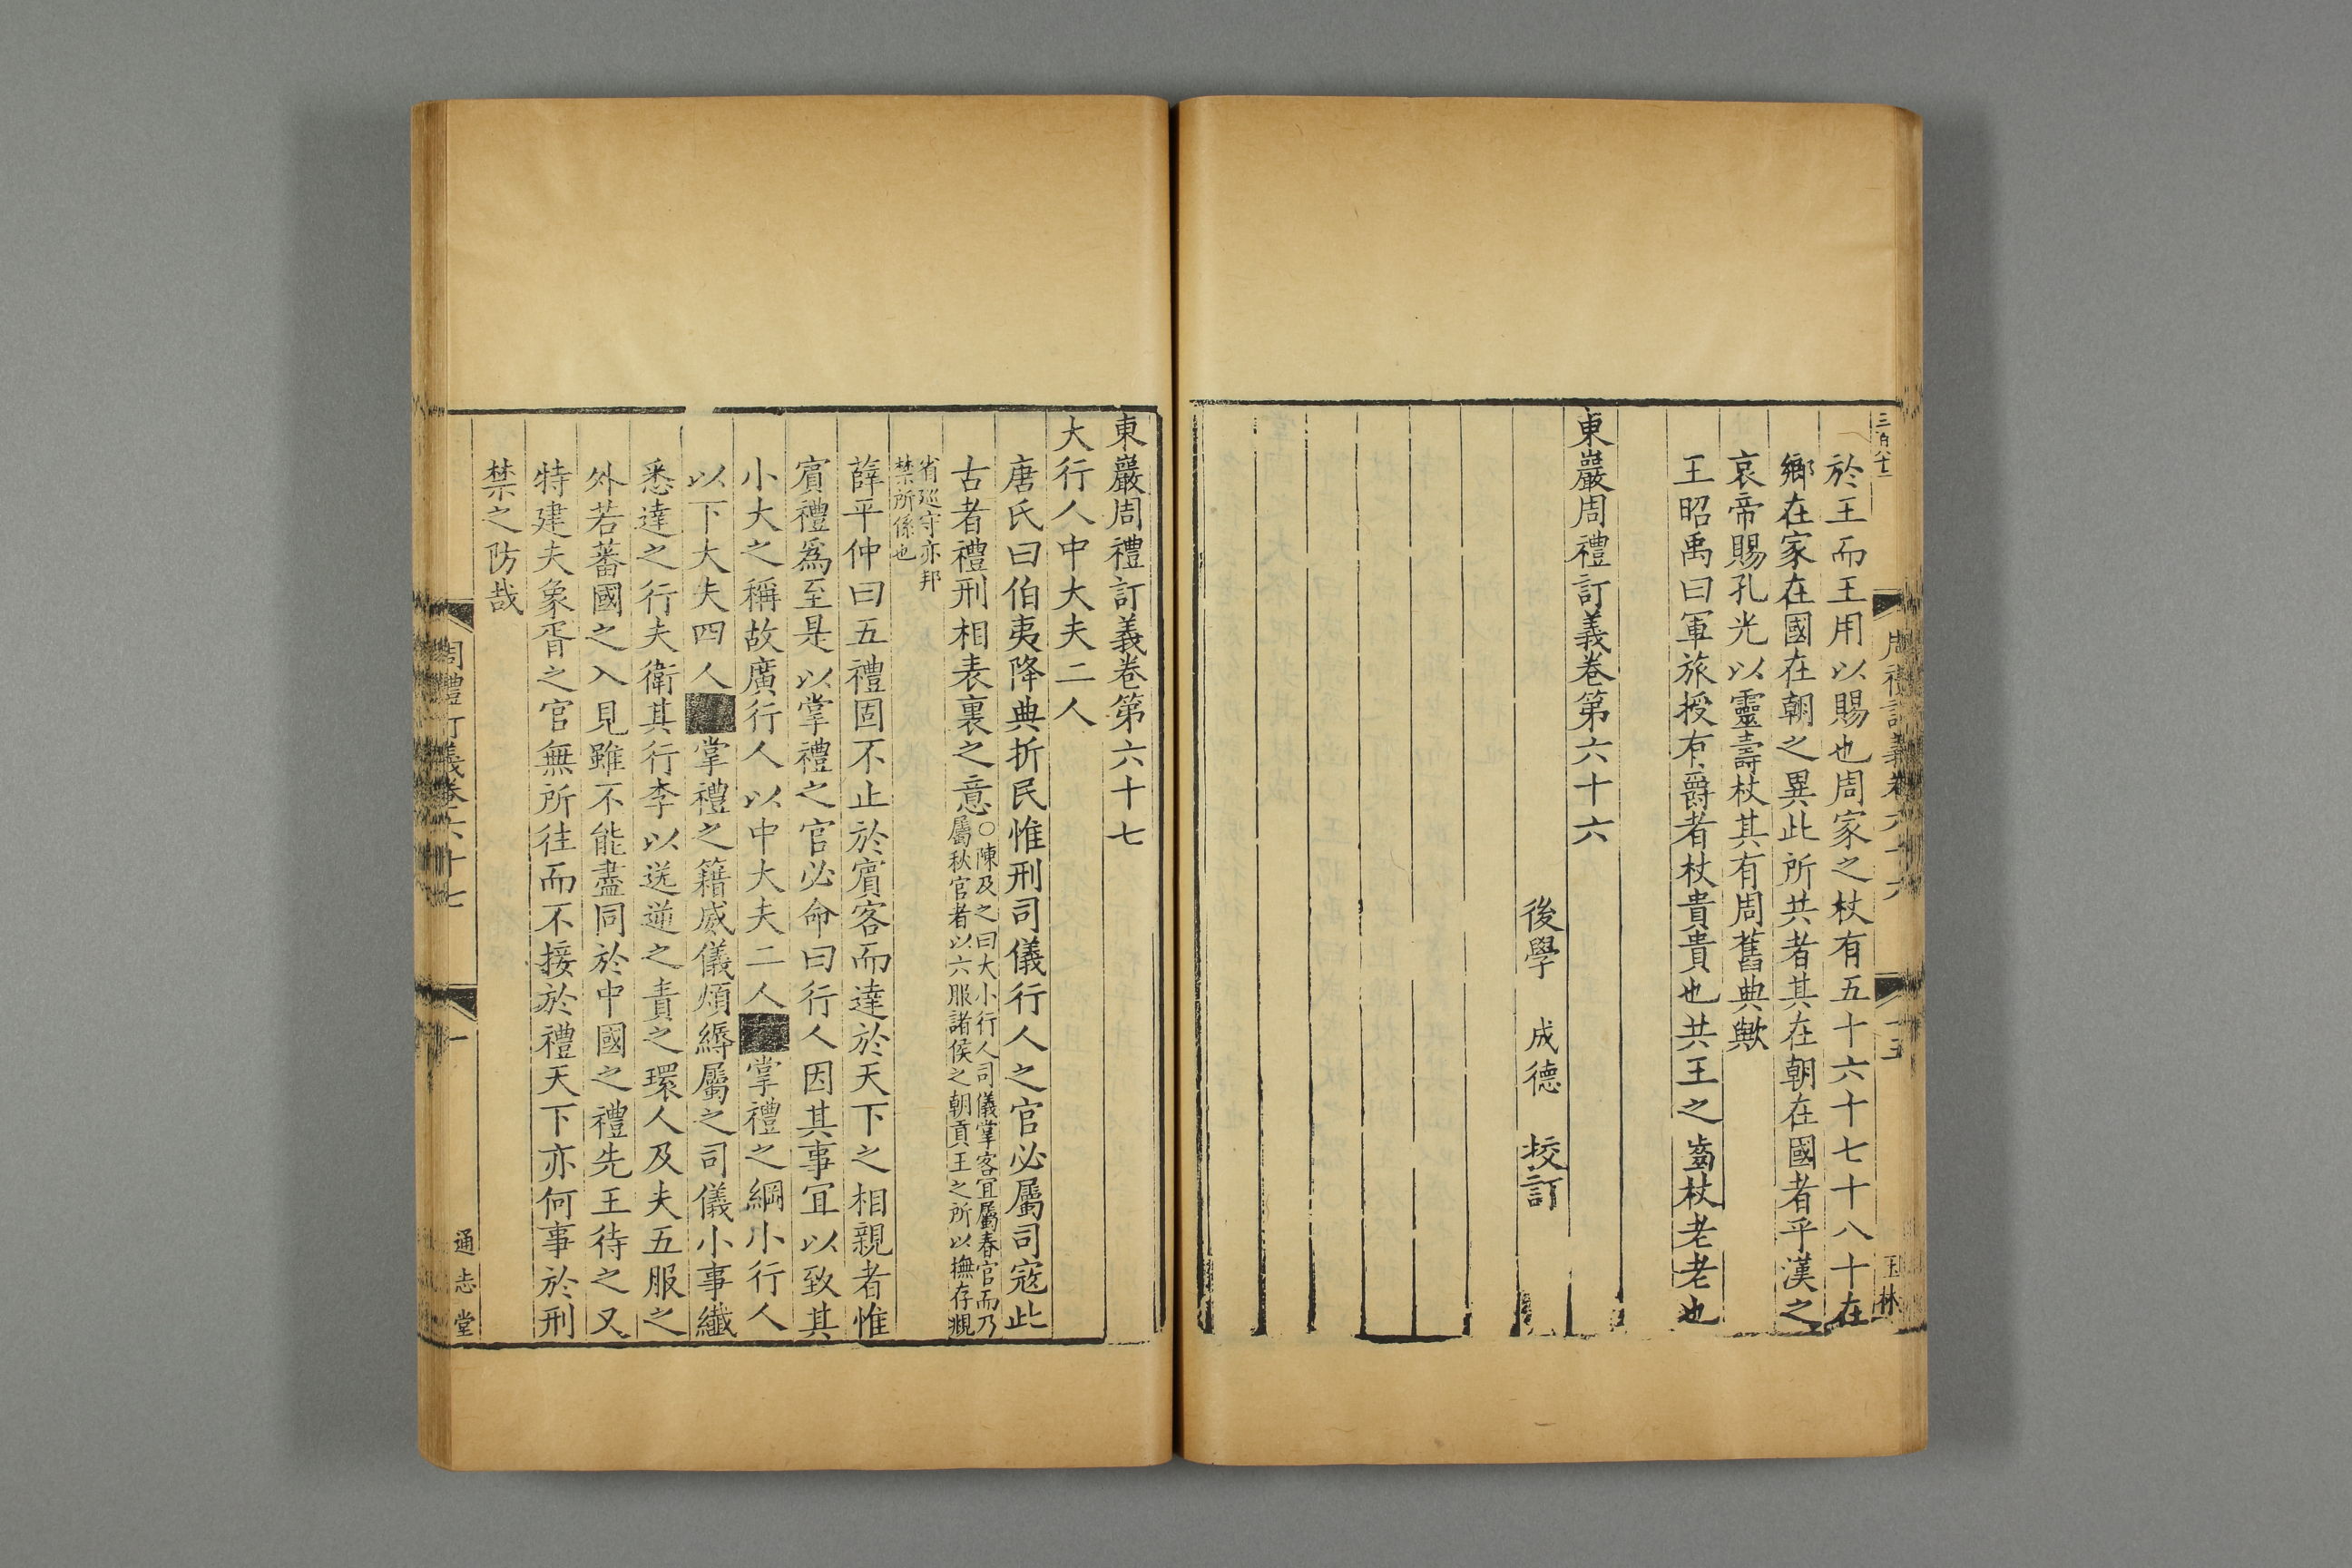 三百八十二
於王而王用以賜也周家之杖有五十六十七十八十在
鄉在家在國在朝之異此所共者其在朝在國者乎漢之
哀帝賜孔光以靈壽杖其有周舊典歟
王昭禹曰軍旅授有爵者杖貴貴也共王之齒杖老老也
東巖周禮訂義卷第六十六
後學 成德 挍訂
周禮訂義卷六十六
十五
玉林
東巖周禮訂義卷第六十七
大行人中大夫二人
唐氏曰伯夷降典折民惟刑司儀行人之官必屬司寇此
古者禮刑相表裏之意○陳及之曰大小行人司儀掌客宜屬春官而乃
屬秋官者以六服諸侯之朝貢王之所以撫存覜
省廵守亦邦
禁所係也
薛平仲曰五禮固不止於賓客而達於天下之相親者惟
賓禮爲至是以掌禮之官必命曰行人因其事宜以致其
小大之稱故廣行人以中大夫二人■掌禮之綱小行人
以下大夫四人■掌禮之籍威儀煩縟屬之司儀小事纖
悉達之行夫衛其行李以送逆之責之環人及夫五服之
外若蕃國之入見雖不能盡同於中國之禮先王待之又
特建夫象胥之官無所往而不接於禮天下亦何事於刑
禁之防哉
周禮訂義卷六十七
一
通志堂